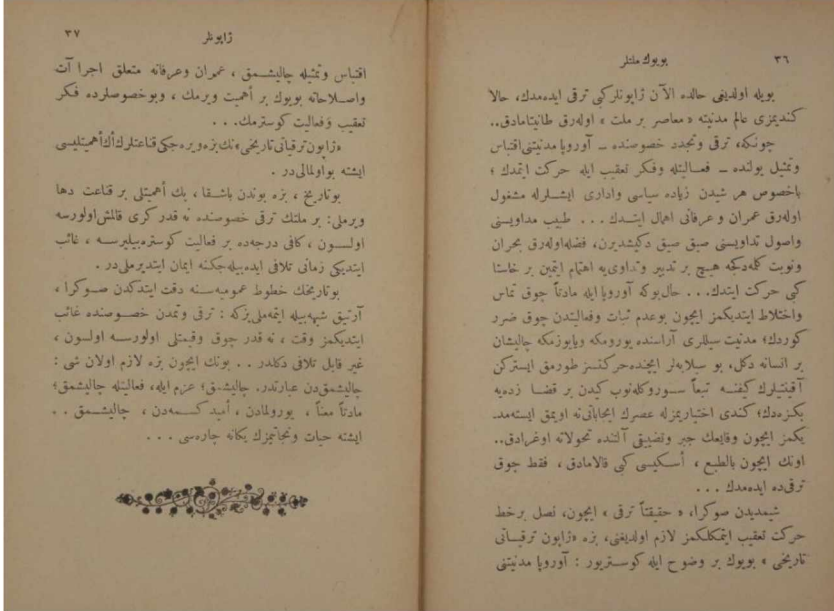 ٣٦
بويوك ملتلر
بويله اولديغى حالده الآن ژاپونلركبى ترقى ايده‌مدك، حالا
كنديمزى عالم مدنيته « معاصر بر ملت » اوله‌رق طانيتامادق..
چونكه، ترقى وتجدد خصوصنده ــ آوروپا مدنيتنى اقتباس
وتمثيل يولنده ــ فعاليتله وفكر تعقيب ايله حركت ايتمدك ؛
باخصوص هر شيدن زياده سياسى وادارى ايشلرله مشغول
اوله‌رق عمران و عرفانى اهمال ايتدك . . . طبيب مداويسنى
واصول تداويسنى صيق صيق دكيشديرن، فضله‌اوله‌رق بحران
ونوبت كلمه‌دكجه هيچ بر تدبير وتداوى‌يه اهتمام ايتمين بر خاستا
كبى حركت ايتدك... حال‌بوكه آوروپا ايله مادتاً چوق تماس
واختلاط ايتديكمز ايچون بوعدم ثبات وفعاليتدن چوق ضرر
كوردك؛ مدنيت سيللرى آراسنده يورومكه وياپوزمكه چاليشان
بر انسانه دكل، بو سيلابه‌لر ايچنده‌حركتسز طورمق ايستركن
آقينتيلرك كيفنه تبعاً سوروكله‌نوب كيدن بر قضا زده‌يه
بكزه‌دك؛ كندى اختياريمزله عصرك ايجاباتى‌نه اويمق ايسته‌مد.
يكمز ايچون وقايعك جبر وتضييقى آلنده تحولاته اوغرادق..
اونك ايچون بالطبع ، أسكيسى كبى قالامادق ، فقط چوق
ترقى‌ده ايده‌مدك . . .
شيمديدن صوكرا، « حقيقتاً ترقى » ايچون، نصل برخط
حركت تعقيب ايتمكلكمز لازم اولديغنى، بزه «ژاپون ترقياتى
تاريخى » بويوك بر وضوح ايله كوستريور : آوروپا مدنيتنى
ژاپونلر
٣٧
اقتباس وتمثيله چاليشمق ، عمران وعرفانه متعلق اجرا آت
واصلاحاته بويوك بر أهميت ويرمك ، وبوخصوصلرده فكر
تعقيب وفعاليت كوسترمك. . .
«ژاپون‌ترقياتى‌تاريخى»نك‌بزه‌ويره‌جكى‌قناعتلرك‌أك‌أهميتليسى
ايشته بواولمالى‌در .
بوتاريخ ، بزه بوندن باشقا ، پك أهميتلى بر قناعت دها
ويرملى: بر ملتك ترقى خصوصنده نه قدر كرى قالمش‌اولورسه
اولسون ، كافى درجه‌ده بر فعاليت كوستره‌بيليرسه ، غائب
ايتديكى زمانى تلافى ايده‌بيله‌جكنه ايمان ايتديرملى‌در .
بوتاريخك خطوط عموميه‌سنه دقت ايتدكدن صوكرا ،
آرتيق شبهه‌بيله ايتمه‌ملى‌يزكه : ترقى وتمدن خصوصنده غائب
ايتديكمز وقت ، نه قدر چوق وقيمتلى اولورسه اولسون ،
غير قابل تلافى دكلدر . . بونك ايچون بزه لازم اولان شى :
چاليشمق‌دن عبارتدر. چاليشمق؛ عزم ايله، فعاليتله چاليشمق؛
مادتاً معناً ، يورولمادن ، أميد كسمه‌دن ، چاليشمق . .
ايشته حيات ونجاتيمزك يكانه چاره‌سى . . .